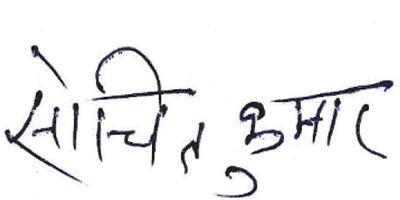 सोचित कुमार